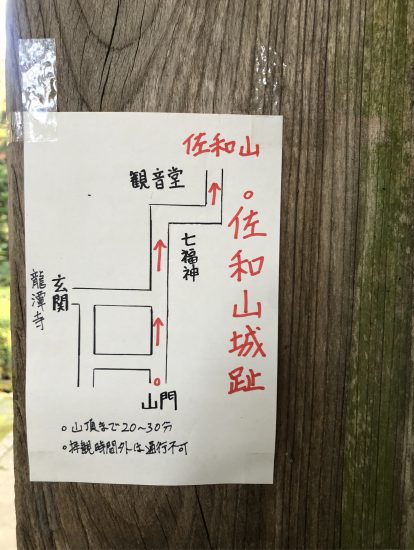 佐和山
観音堂
。佐和山城趾
七福神
玄関
龍潭寺
山門
。山頂まで20〜30分
。拝観時間外は通行不可